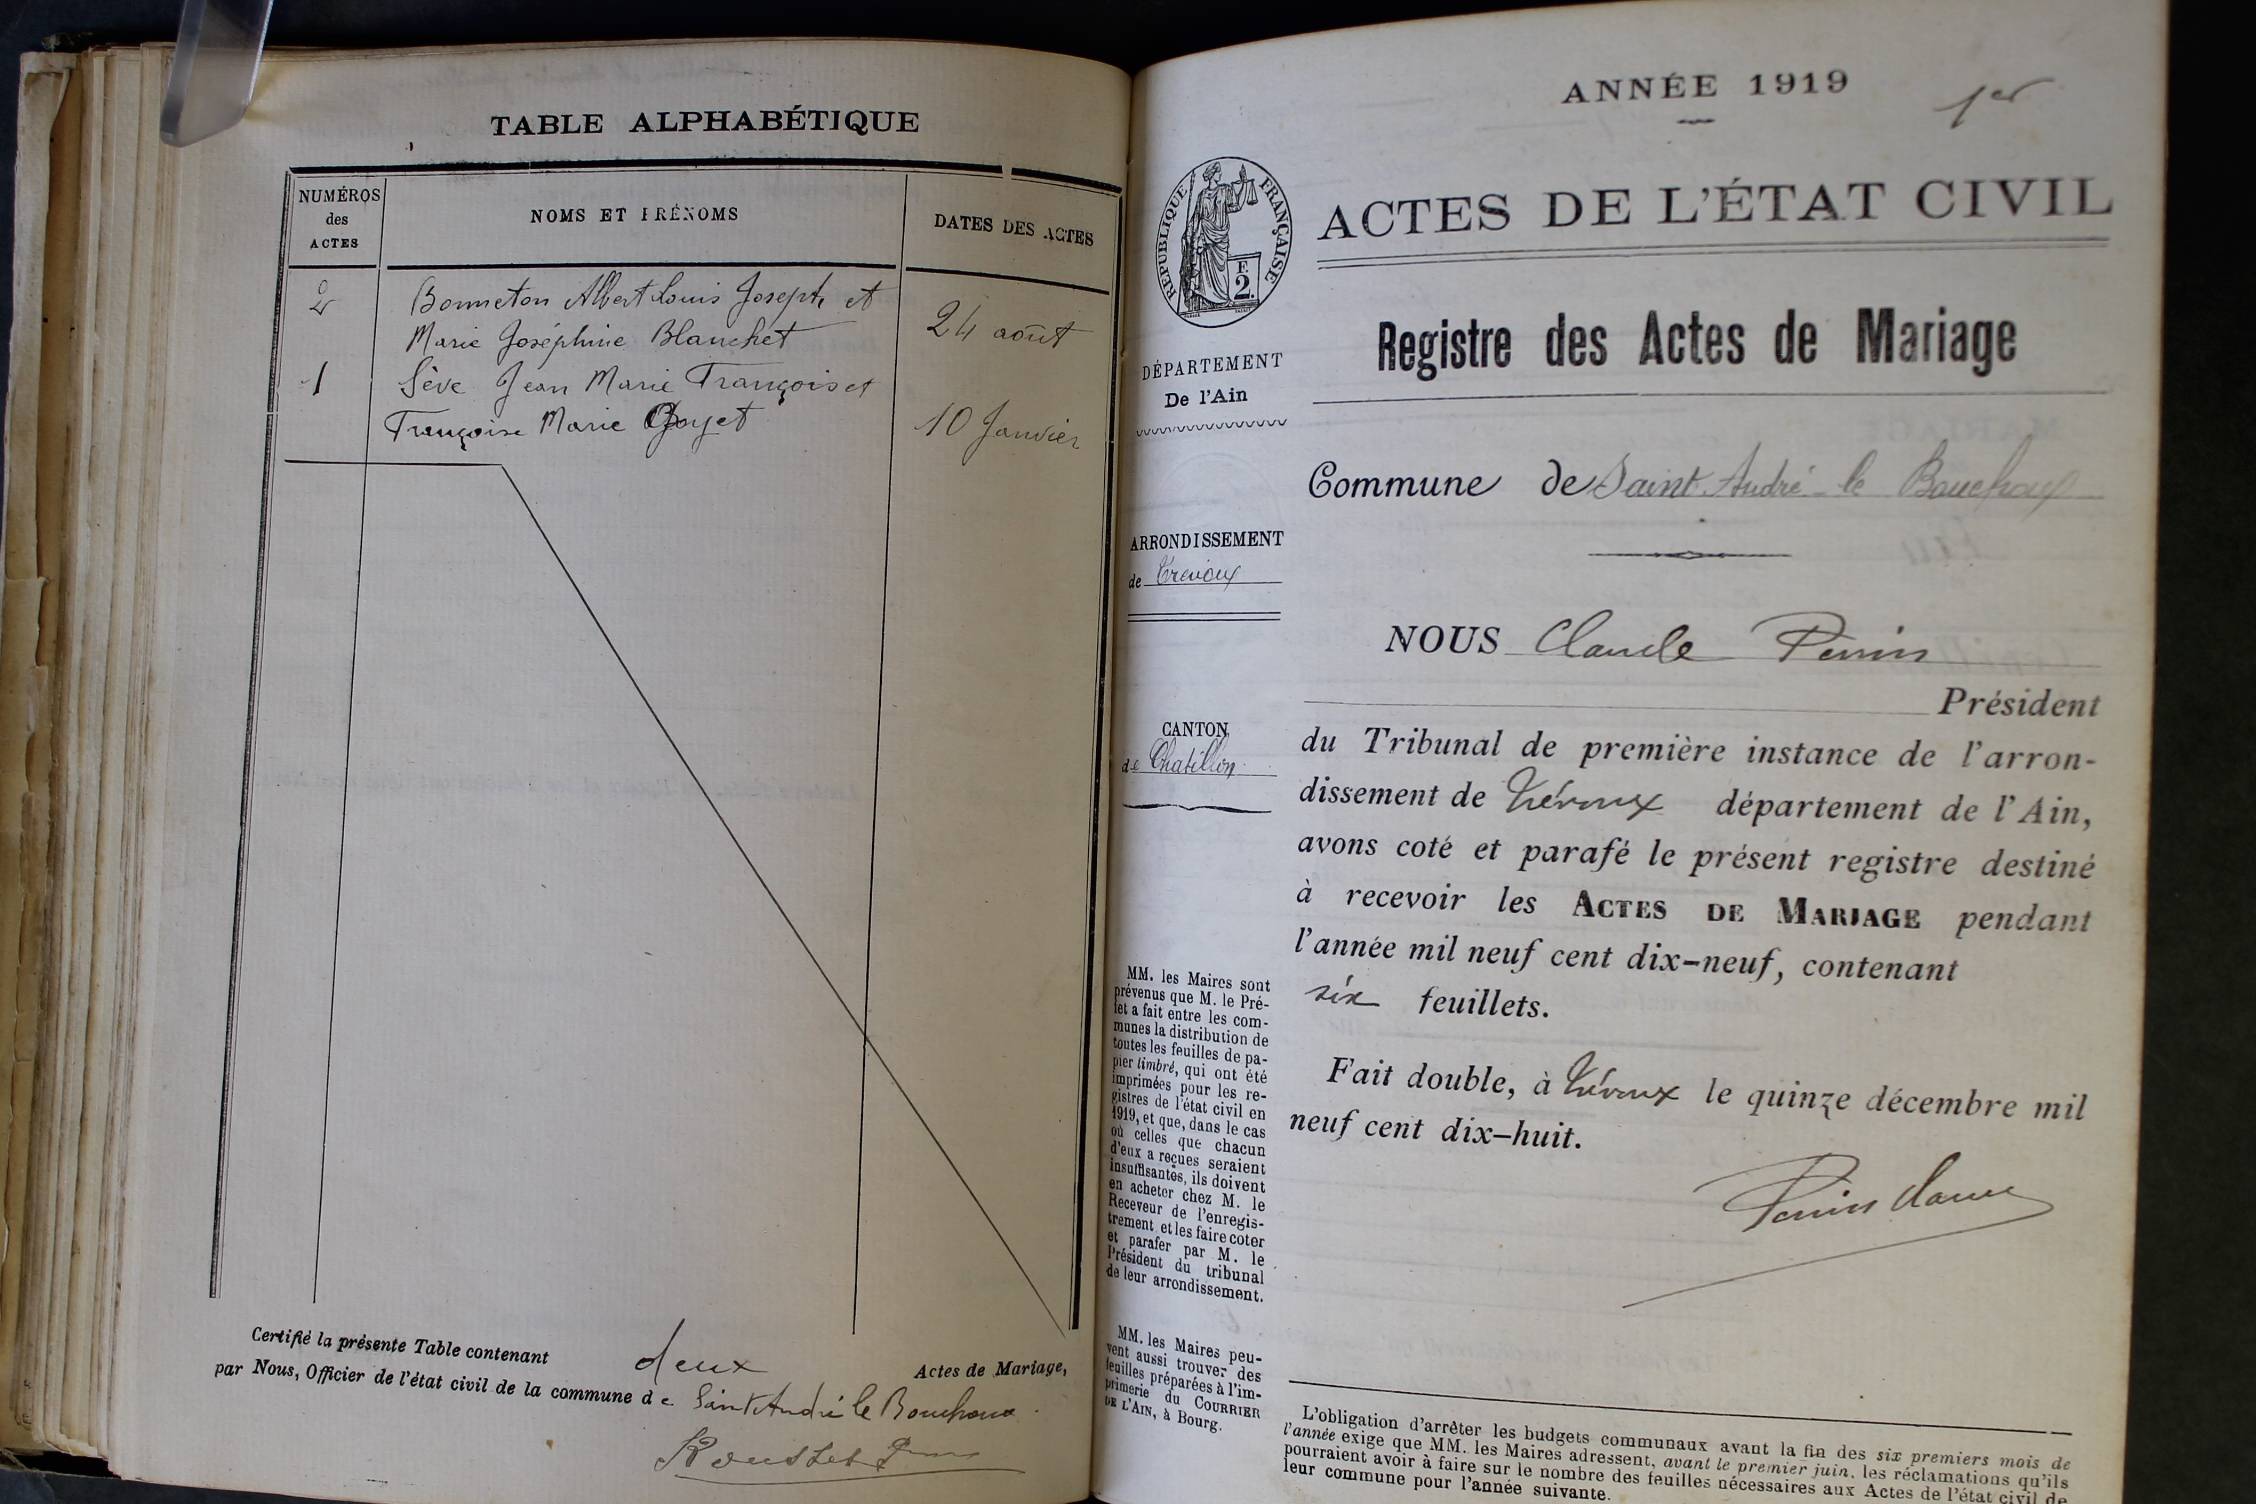 TABLE ALPHABÉTIQUE
NUMÉROS
des
ACTES
NOMS ET PRÉNOMS
DATES DES ACTES
2
Bonneton Albert Louis Joseph et
Marie Joséphine Blanchet
24 août
1
Sève Jean Marie François et
Françoise Marie Goyet
10 Janvier
Certifié la présente Table contenant deux Actes de Mariage,
par Nous, Officier de l'état civil de la commune de Saint André le Bouchoux
Rousset
ANNÉE 1919
1er
RÉPUBLIQUE FRANÇAISE
F.
2.
ACTES DE L'ÉTAT CIVIL
Registre des Actes de Mariage
DÉPARTEMENT
De l'Ain
Commune de Saint André le Bouchoux
ARRONDISSEMENT
de Trévoux
NOUS Claude Perrin
Président
CANTON
de Chatillon
du Tribunal de première instance de l'arron-
dissement de Trévoux département de l'Ain,
avons coté et parafé le présent registre destiné
à recevoir les ACTES DE MARIAGE pendant
l'année mil neuf cent dix-neuf, contenant
six feuillets.
Fait double, à Trévoux le quinze décembre mil
neuf cent dix-huit.
Perrin Claude
MM. les Maires sont
prévenus que M. le Pré-
fet a fait entre les com-
munes la distribution de
toutes les feuilles de pa-
pier timbré, qui ont été
imprimées pour les re-
gistres de l'état civil en
1919, et que, dans le cas
où celles que chacun
d'eux a reçues seraient
insuffisantes, ils doivent
en acheter chez M. le
Receveur de l'enregis-
trement et les faire coter
et parafer par M. le
Président du tribunal
de leur arrondissement.
MM. les Maires peu-
vent aussi trouver des
feuilles préparées à l'im-
primerie du COURRIER
DE L'AIN, à Bourg.
L'obligation d'arrêter les budgets communaux avant la fin des six premiers mois de
l'année exige que MM. les Maires adressent, avant le premier juin, les réclamations qu'ils
pourraient avoir à faire sur le nombre des feuilles nécessaires aux Actes de l'état civil de
leur commune pour l'année suivante.